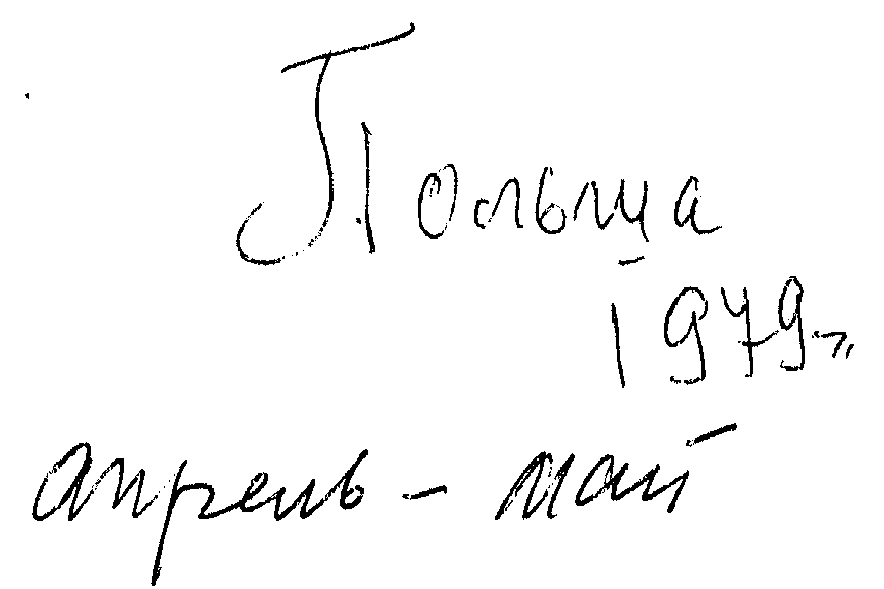 Польша
1979г.
апрель - май